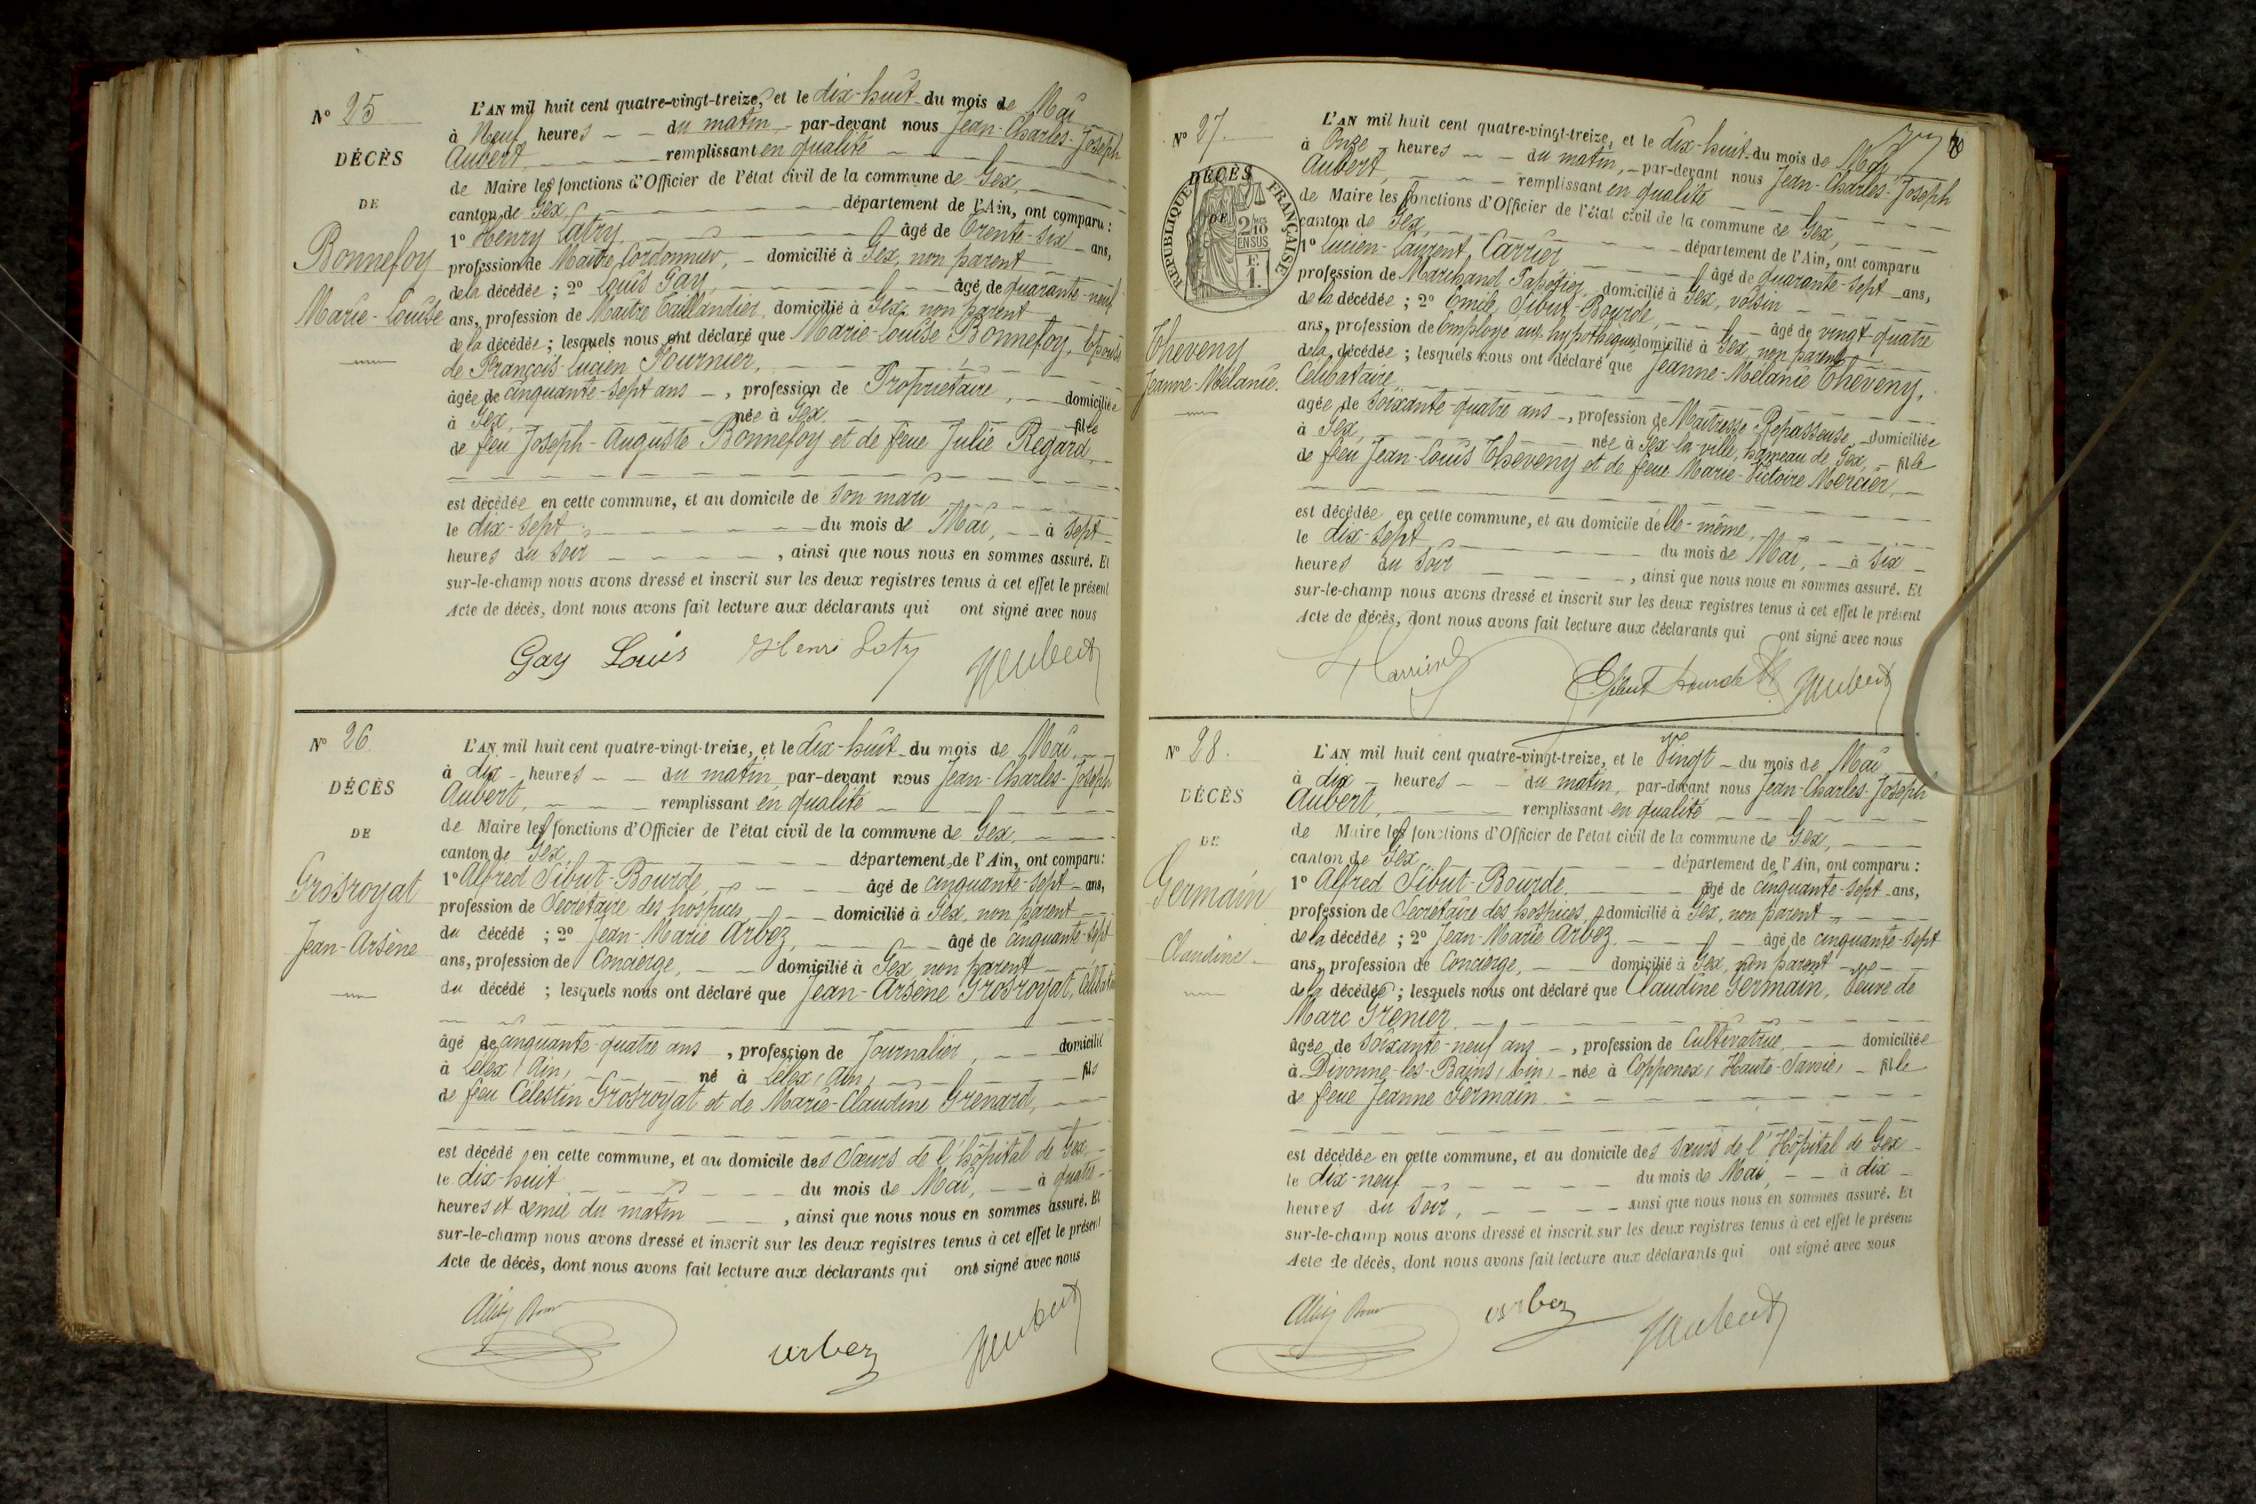 N° 25
DÉCÈS
DE
Bonnefoy
Marie-Louise
L'AN mil huit cent quatre-vingt-treize, et le dix-huit du mois de Mai
à Neuf heures du matin, par-devant nous Jean-Charles-Joseph
Aubert, remplissant en qualité
de Maire les fonctions d'Officier de l'état civil de la commune de Gex,
canton de Gex, département de l'Ain, ont comparu :
1° Henry Latry, âgé de trente-six ans,
profession de Maître Cordonnier, domicilié à Gex, non parent
de la décédée ; 2° Louis Gay, âgé de quarante-neuf
ans, profession de Maître Taillandier, domicilié à Gex, non parent
de la décédée ; lesquels nous ont déclaré que Marie-Louise Bonnefoy, Epouse
de François-Lucien Fournier,
âgée de cinquante-sept ans, profession de Propriétaire, domiciliée
à Gex, née à Gex, fille
de feu Joseph-Auguste Bonnefoy et de feue Julie Regard,
est décédée en cette commune, et au domicile de son mari
le dix-sept du mois de Mai, à sept
heures du soir, ainsi que nous nous en sommes assuré. Et
sur-le-champ nous avons dressé et inscrit sur les deux registres tenus à cet effet le présent
Acte de décès, dont nous avons fait lecture aux déclarants qui ont signé avec nous
Gay Louis Henri Latry JAubert
N° 26
DÉCÈS
DE
Grosroyat
Jean-Arsène
L'AN mil huit cent quatre-vingt-treize, et le dix-huit du mois de Mai,
à dix heures du matin par-devant nous Jean-Charles-Joseph
Aubert, remplissant en qualité
de Maire les fonctions d'Officier de l'état civil de la commune de Gex,
canton de Gex, département de l'Ain, ont comparu :
1° Alfred Sibut-Bourde, âgé de cinquante-sept ans,
profession de Secrétaire des hospices domicilié à Gex, non parent
du décédé ; 2° Jean-Marie Arbez, âgé de cinquante-sept
ans, profession de Concierge, domicilié à Gex, non parent
du décédé ; lesquels nous ont déclaré que Jean-Arsène Grosroyat, Célibataire
âgé de cinquante-quatre ans, profession de Journalier, domicilié
à Lélex (Ain), né à Lélex (Ain), fils
de feu Célestin Grosroyat et de Marie-Claudine Grenard,
est décédé en cette commune, et au domicile des Sœurs de l'hôpital de Gex
le dix-huit du mois de Mai, à quatre
heures et demie du matin, ainsi que nous nous en sommes assuré. Et
sur-le-champ nous avons dressé et inscrit sur les deux registres tenus à cet effet le présent
Acte de décès, dont nous avons fait lecture aux déclarants qui ont signé avec nous
arbez JAubert
N° 27
DÉCÈS
DE
RÉPUBLIQUE FRANÇAISE
2/10 EN SUS
E.
1.
Theveny
Jeanne-Mélanie.
L'AN mil huit cent quatre-vingt-treize, et le dix-huit du mois de Mai
à Onze heures du matin, par-devant nous Jean-Charles-Joseph
Aubert, remplissant en qualité
de Maire les fonctions d'Officier de l'état civil de la commune de Gex,
canton de Gex, département de l'Ain, ont comparu
1° Lucien-Laurent Carrier âgé de quarante-sept ans,
profession de Marchand Papetier domicilié à Gex, voisin
de la décédée ; 2° Emile Sibut-Bourde, âgé de vingt-quatre
ans, profession de Employé aux hypothèques domicilié à Gex, non parent
de la décédée ; lesquels nous ont déclaré que Jeanne-Mélanie Theveny,
Célibataire
agée de soixante-quatre ans, profession de Maîtresse Repasseuse domiciliée
à Gex, née à Gex-la-ville, hameau de Gex, fille
de feu Jean-Louis Theveny et de feue Marie-Victoire Mercier,
est décédée en cette commune, et au domicile d'elle-même,
le dix-sept du mois de Mai, à six
heures du soir, ainsi que nous nous en sommes assuré. Et
sur-le-champ nous avons dressé et inscrit sur les deux registres tenus à cet effet le présent
Acte de décès, dont nous avons fait lecture aux déclarants qui ont signé avec nous
LCarrier ESibut Bourde JAubert
N° 28.
DÉCÈS
DE
Germain
Claudine
L'AN mil huit cent quatre-vingt-treize, et le Vingt du mois de Mai
à dix heures du matin, par-devant nous Jean-Charles-Joseph
Aubert, remplissant en qualité
de Maire les fonctions d'Officier de l'état civil de la commune de Gex,
canton de Gex département de l'Ain, ont comparu :
1° Alfred Sibut-Bourde, âgé de cinquante-sept ans,
profession de Secrétaire des hospices, domicilié à Gex, non parent
de la décédée ; 2° Jean-Marie Arbez, âgé de cinquante-sept
ans, profession de Concierge, domicilié à Gex, non parent
de la décédée ; lesquels nous ont déclaré que Claudine Germain, Veuve de
Marc Grenier,
âgée de soixante-neuf ans, profession de Cultivatrice domiciliée
à Divonne-les-Bains (Ain), née à Copponex (Haute-Savoie), fille
de feue Jeanne Germain
est décédée en cette commune, et au domicile des sœurs de l'Hôpital de Gex
le dix-neuf du mois de Mai, à dix
heures du soir, ainsi que nous nous en sommes assuré. Et
sur-le-champ nous avons dressé et inscrit sur les deux registres tenus à cet effet le présent
Acte de décès, dont nous avons fait lecture aux déclarants qui ont signé avec nous
arbez JAubert